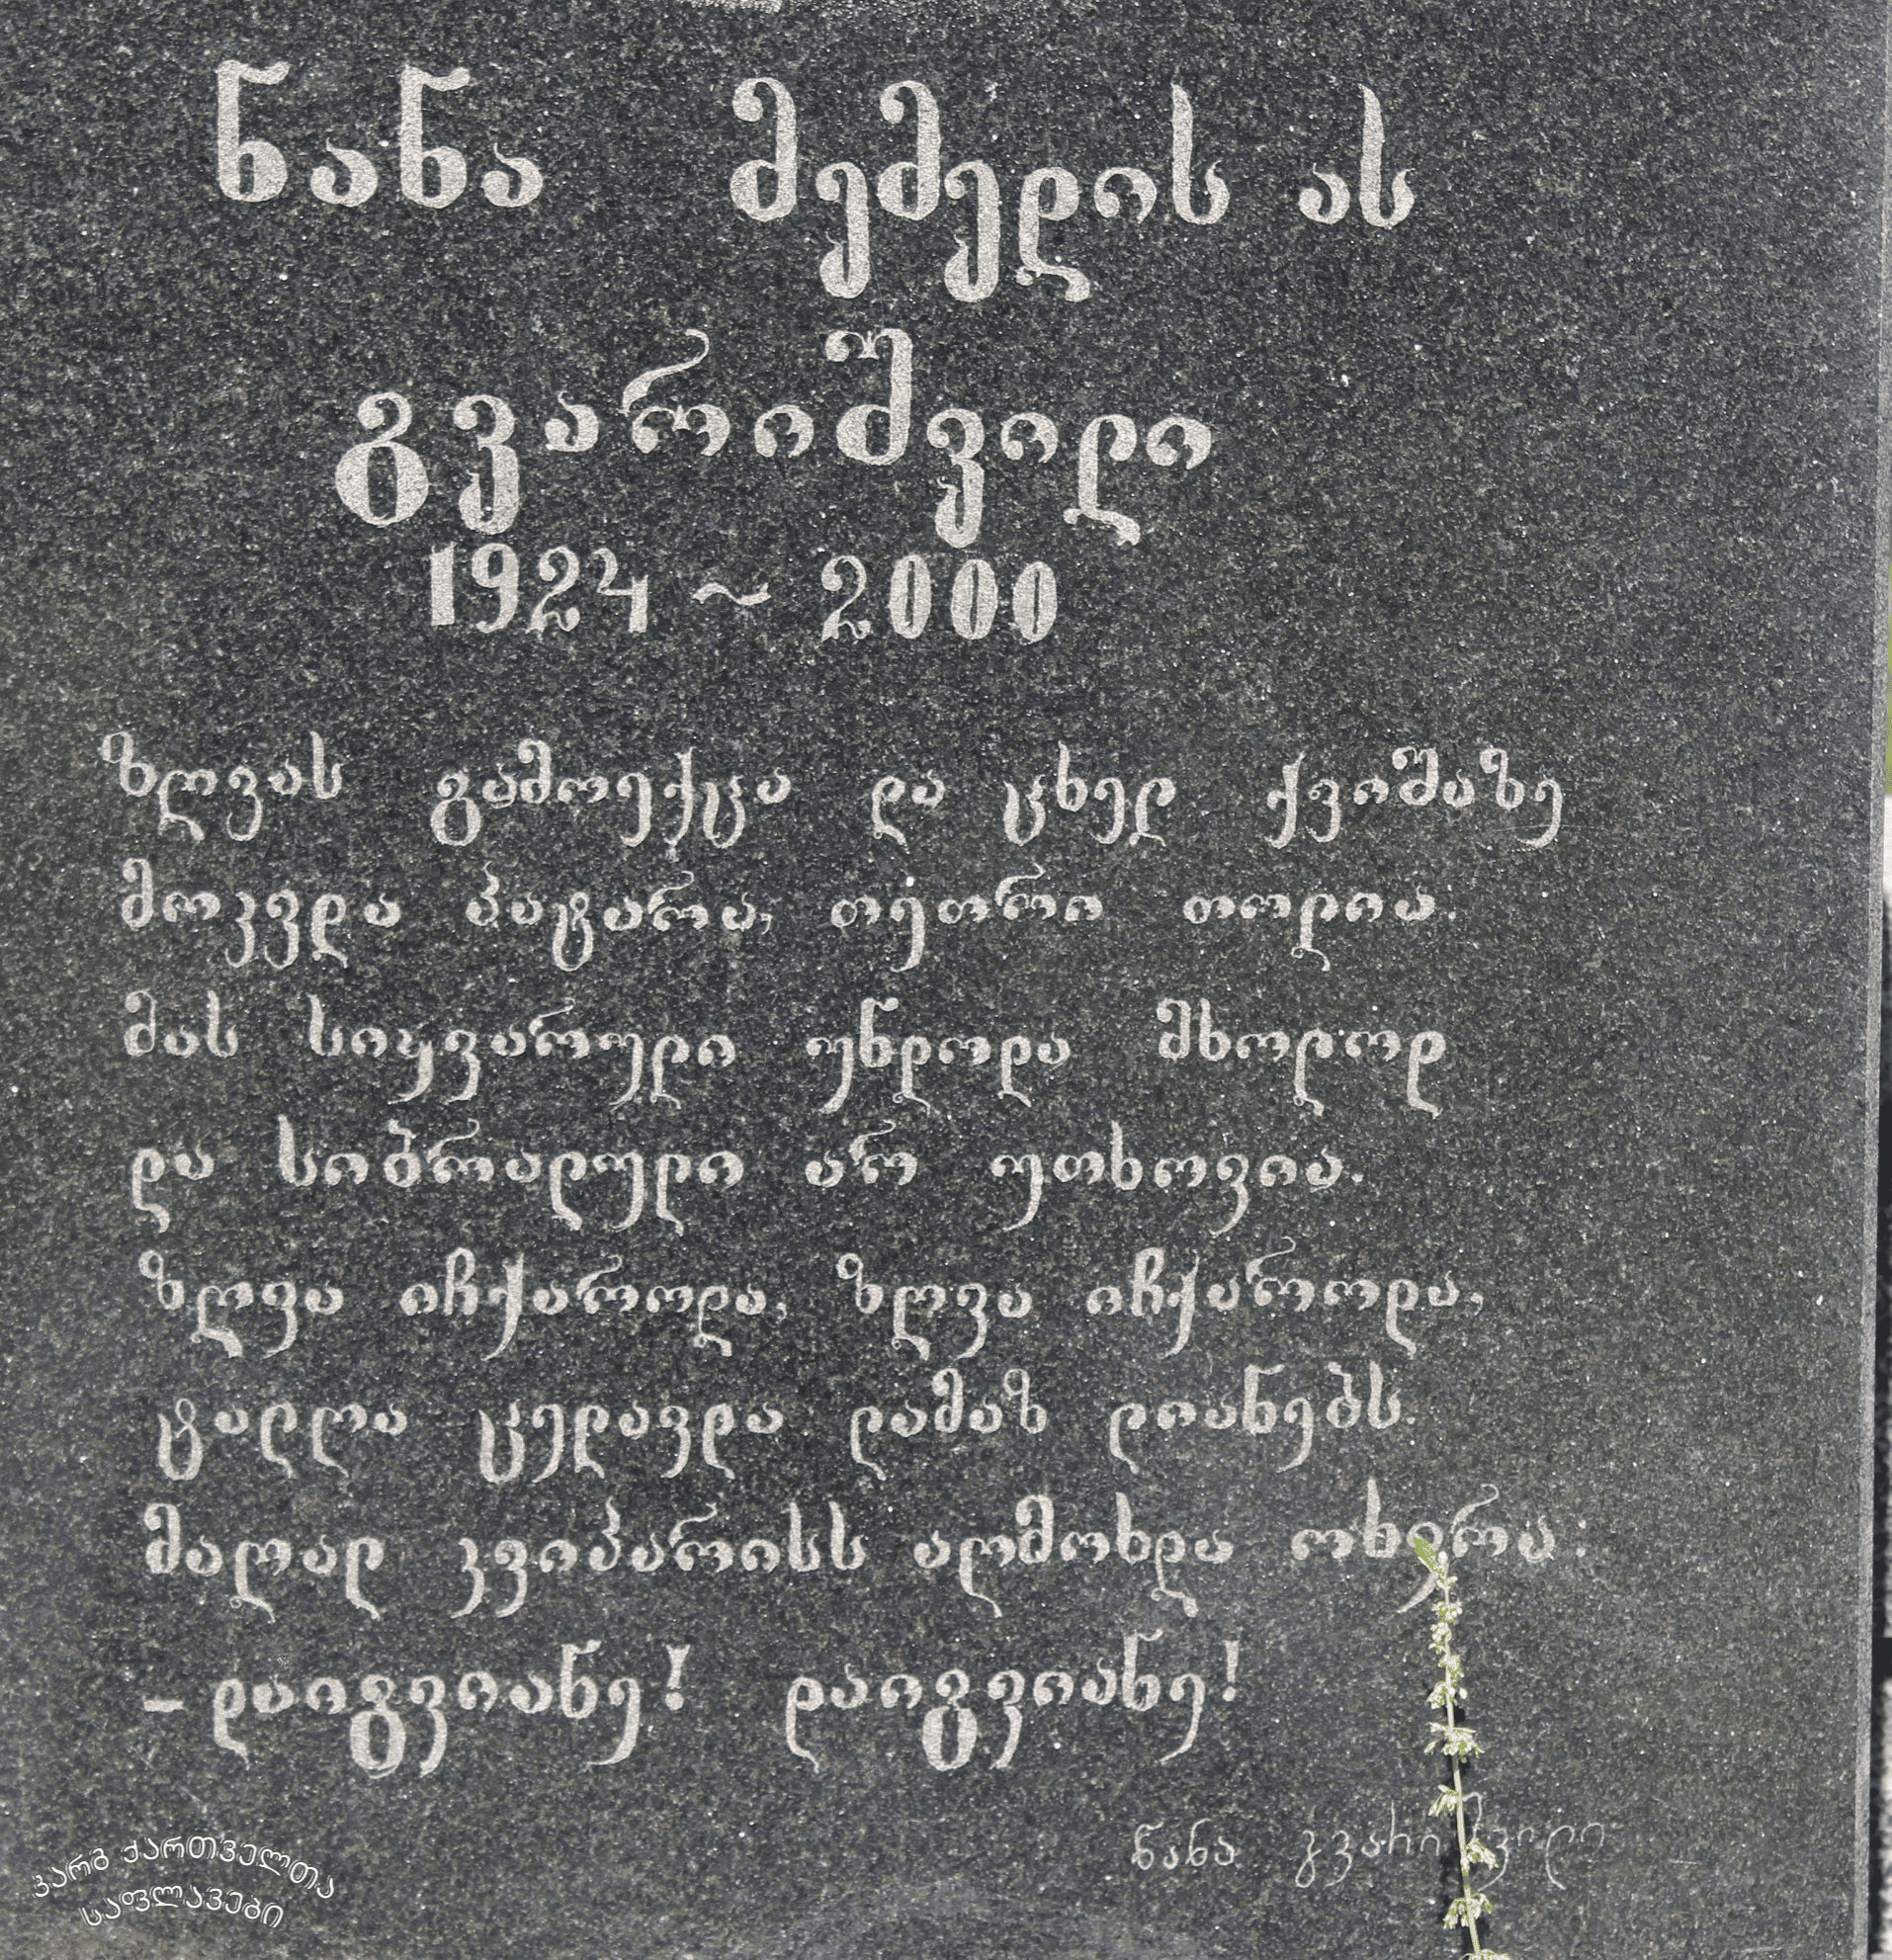 ნანა მემედის ას
გვარიშვილი
1924 ~ 2000
ზღვას გამოექცა და ცხელ ქვიშაზე
მოკვდა პატარა, თეთრი თოლია.
მას სიყვარული უნდოდა მხოლოდ
და სიბრალული არ უთხოვია.
ზღვა იჩქაროდა, ზღვა იჩქაროდა,
ტალღა ცელავდა ლამაზ ლიანებს.
მაღალ კვიპარისს აღმოხდა ოხვრა:
– დაიგვიანე! დაიგვიანე!
ნანა გვარიშვილი
კარგ ქართველთა
საფლავები